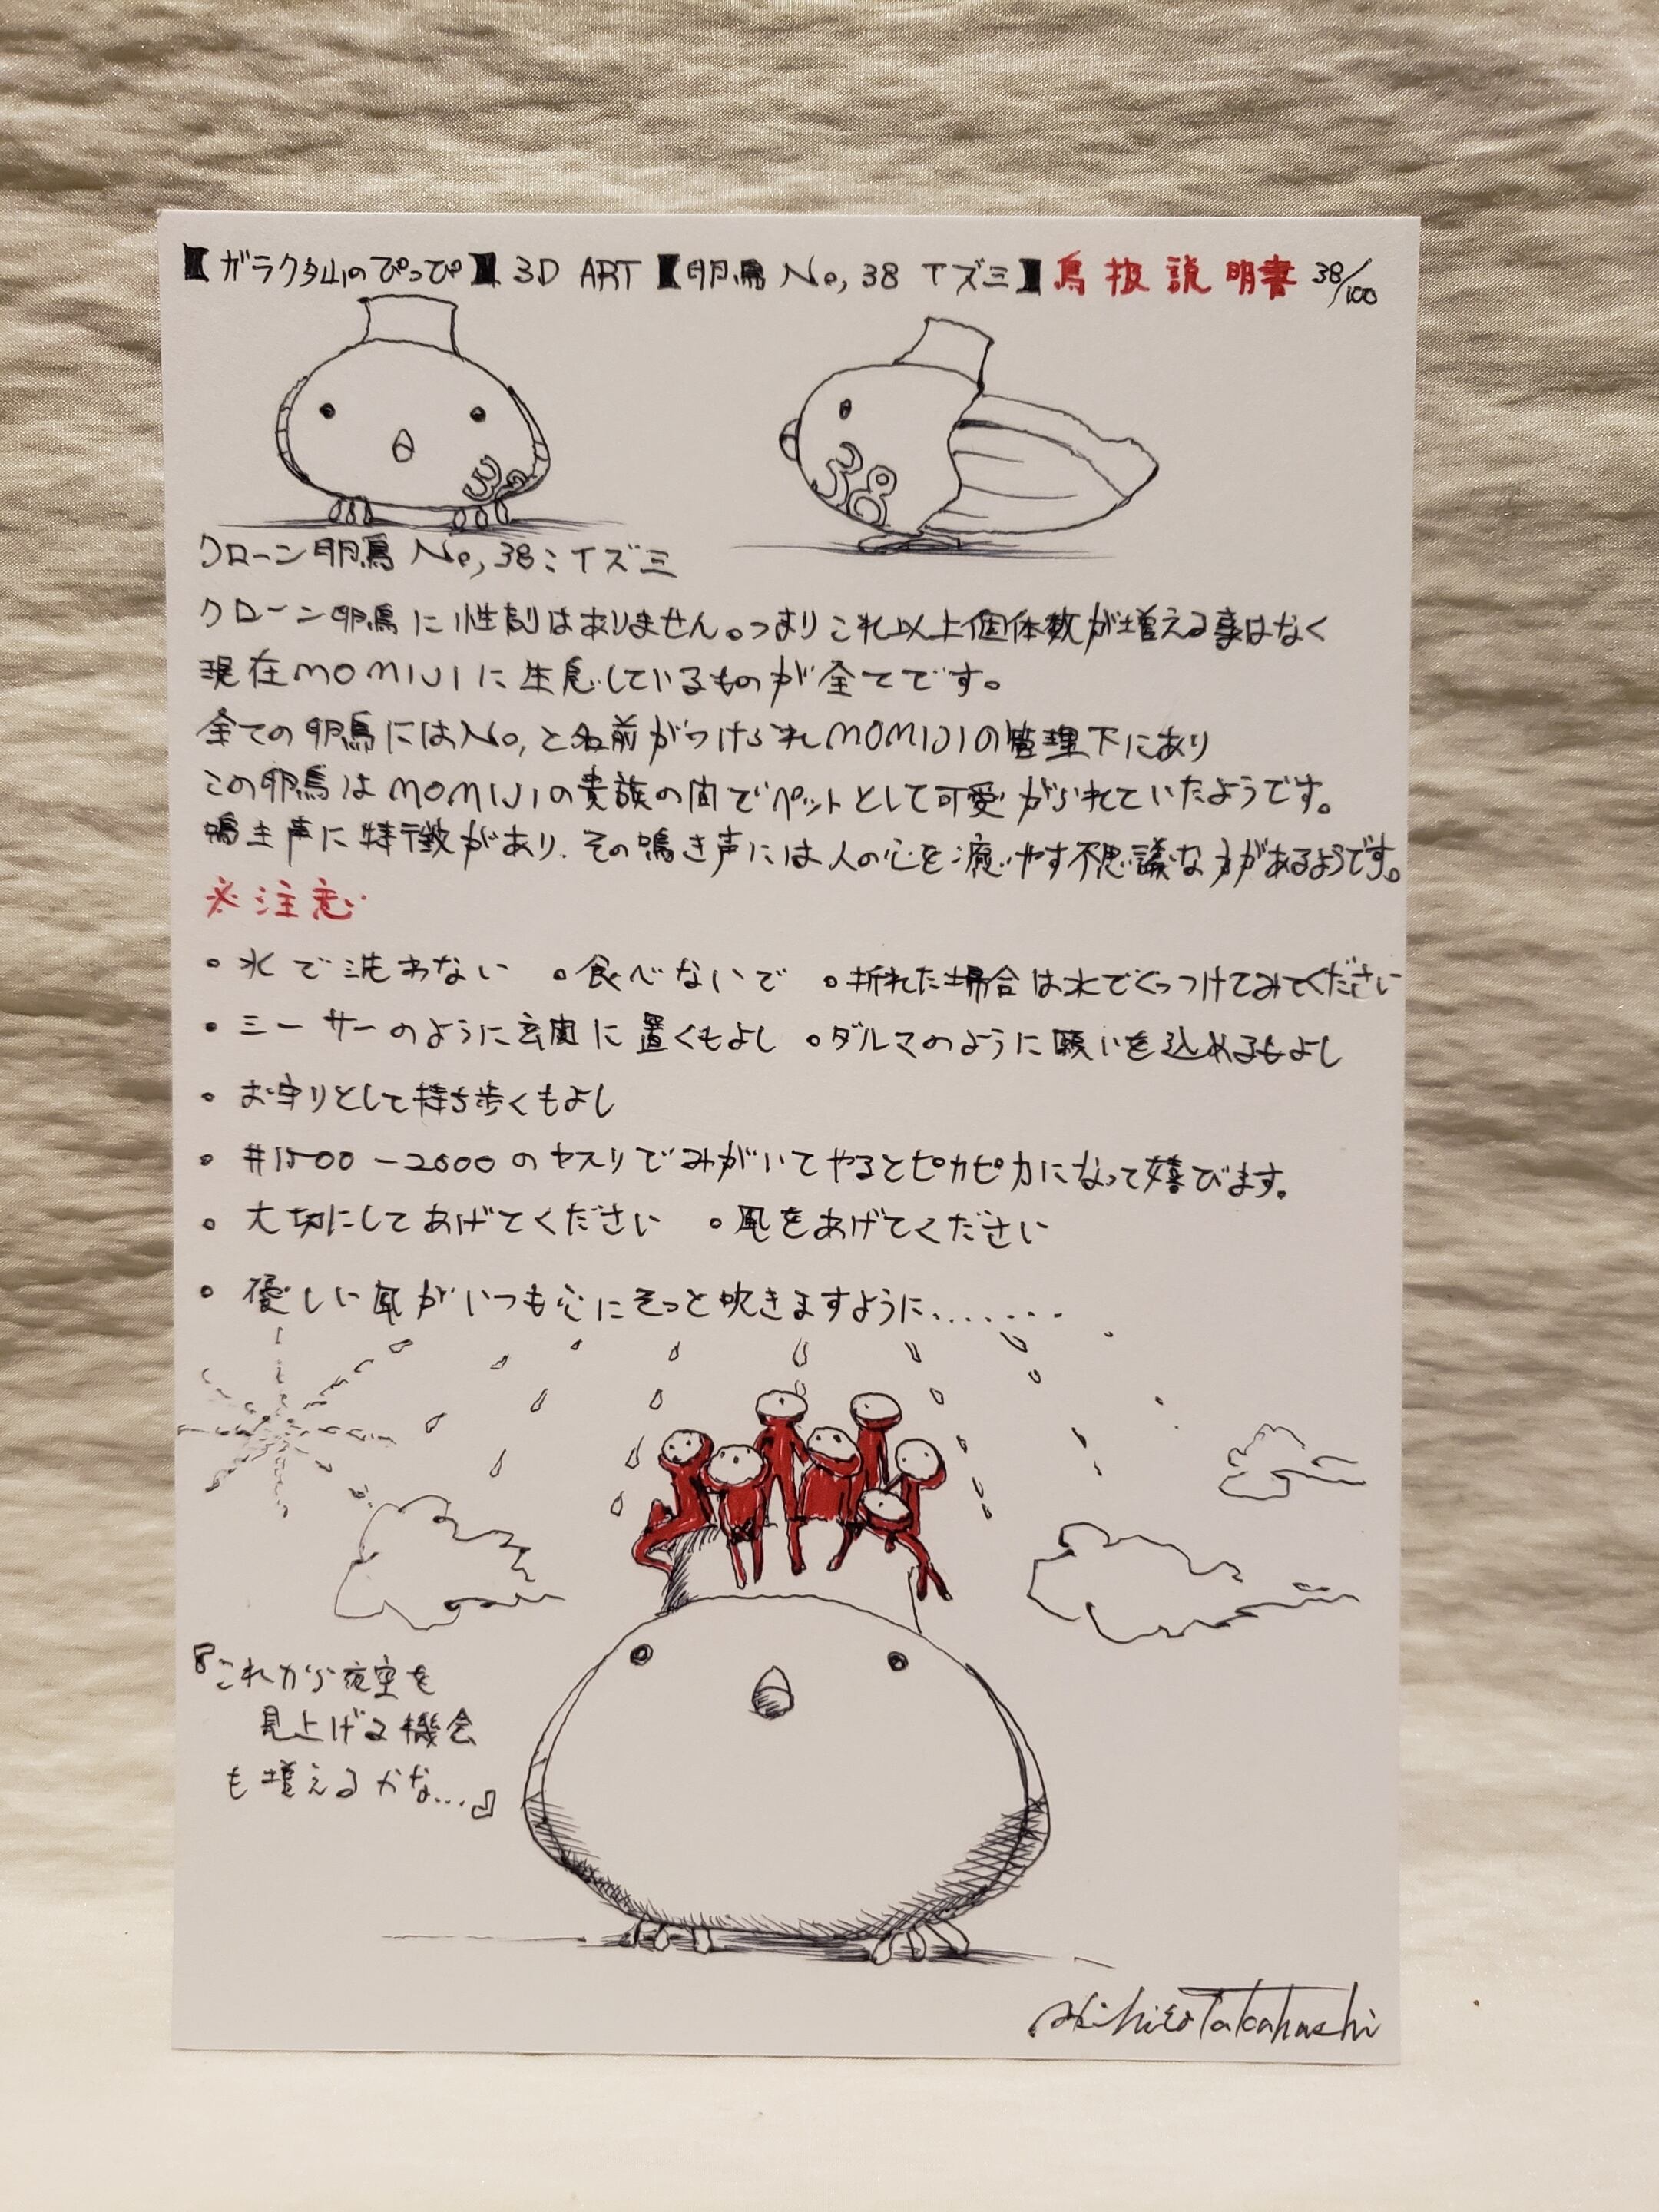 【ガラクタ山のぴっぴ】 3D ART 【卵鳥 No,38 イズミ】 鳥扱説明書 38/100
38
38
クローン卵鳥 No,38:イズミ
クローン卵鳥に性別はありません。つまりこれ以上個体数が増える事はなく
現在MOMIJIに生息しているものが全てです。
全ての卵鳥にはNo,と名前がつけられMOMIJIの管理下にあり
この卵鳥はMOMIJIの貴族の間でペットとして可愛がられていたようです。
鳴き声に特徴があり、その鳴き声には人の心を癒やす不思議な力があるようです。
※注意
・水で洗わない ・食べないで ・折れた場合は水でくっつけてみてください
・シーサーのように玄関に置くもよし ・ダルマのように願いを込めるもよし
・お守りとして持ち歩くもよし
・#1500-2000のヤスリでみがいてやるとピカピカになって喜びます。
・大切にしてあげてください ・風をあげてください
・優しい風がいつも心にそっと吹きますように.......
『これから夜空を
見上げる機会
も増えるかな...』
Akihiro Takahashi